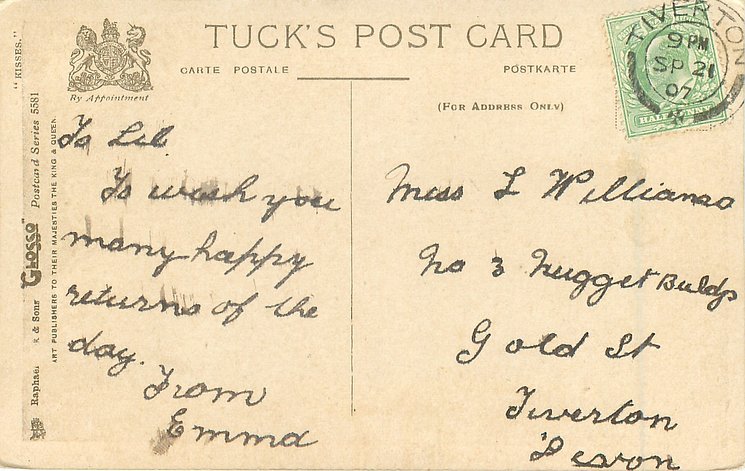 TUCK'S POST CARD
CARTE POSTALE
POSTKARTE
(FOR ADDRESS ONLY)
By Appointment
"KISSES."
Raphael & Sons "Glosso" Postcard Series 5581
ART PUBLISHERS TO THEIR MAJESTIES THE KING & QUEEN
TIVERTON
9 PM
SP 21
07
HALFPENNY
To Lil
To wish you
many happy
returns of the
day.
From
Emma
Miss L Williams
No 3 Nugget Buldgs
Gold St
Tiverton
Devon